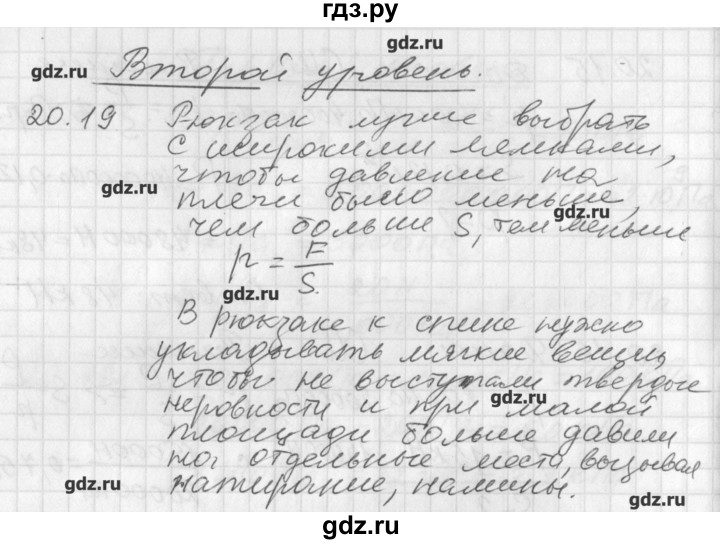 гдз.ру
gdz.ru
Второй уровень.
gdz.ru
20.19 Рюкзак лучше выбрать
с широкими лямками,
чтобы давление на
gdz.ru
плечи было меньше,
gdz.ru
чем больше S, тем меньше
p = F/S.
gdz.ru
В рюкзаке к спине нужно
укладывать мягкие вещи,
чтобы не выступали твердые
gdz.ru
неровности и при малой
площади больше давили
на отдельные места, вызывая
gdz.ru
натирание, намины.
gdz.ru
gdz.ru